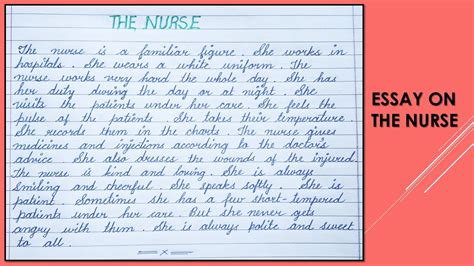 THE NURSE
The nurse is a familiar figure. She works in
hospitals. She wears a white uniform. The
nurse works very hard the whole day. She has
her duty during the day or at night. She
visits the patients under her care. She feels the
pulse of the patients. She takes their temperature.
She records them in the charts. The nurse gives
medicines and injections according to the doctor's
advice. She also dresses the wounds of the injured.
The nurse is kind and loving. She is always
smiling and cheerful. She speaks softly. She is
patient. Sometimes she has a few short-tempered
patients under her care. But she never gets
angry with them. She is always polite and sweet
to all.
ESSAY ON
THE NURSE